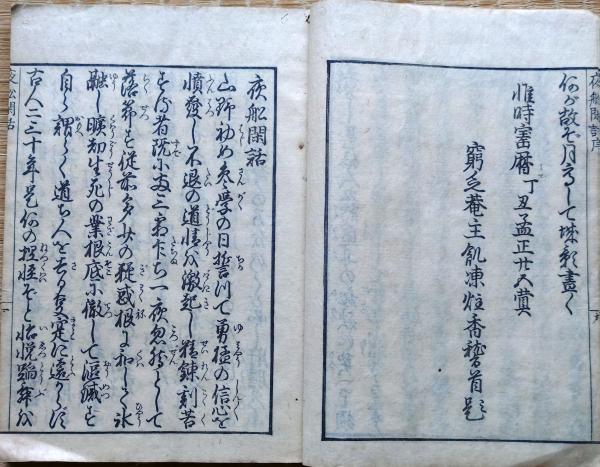 夜船閑話序
何が故ぞ月高して城影盡く
惟時寳暦丁丑孟正廿五蓂
窮乏菴主飢凍炷香稽首題
夜船閑話
山野初め參學の日誓つて勇猛の信心を
憤發し不退の道情を激起し精錬刻苦
する者既に両三霜乍ち一夜忽然として
落節す從前多少の疑惑根に和して氷
融し曠劫生死の業根底に徹して漚滅す
自ら謂らく道ち人を去る事寔に遠からず
古人二三十年是何の捏怪ぞと怡悦蹈舞を
夜船閑話